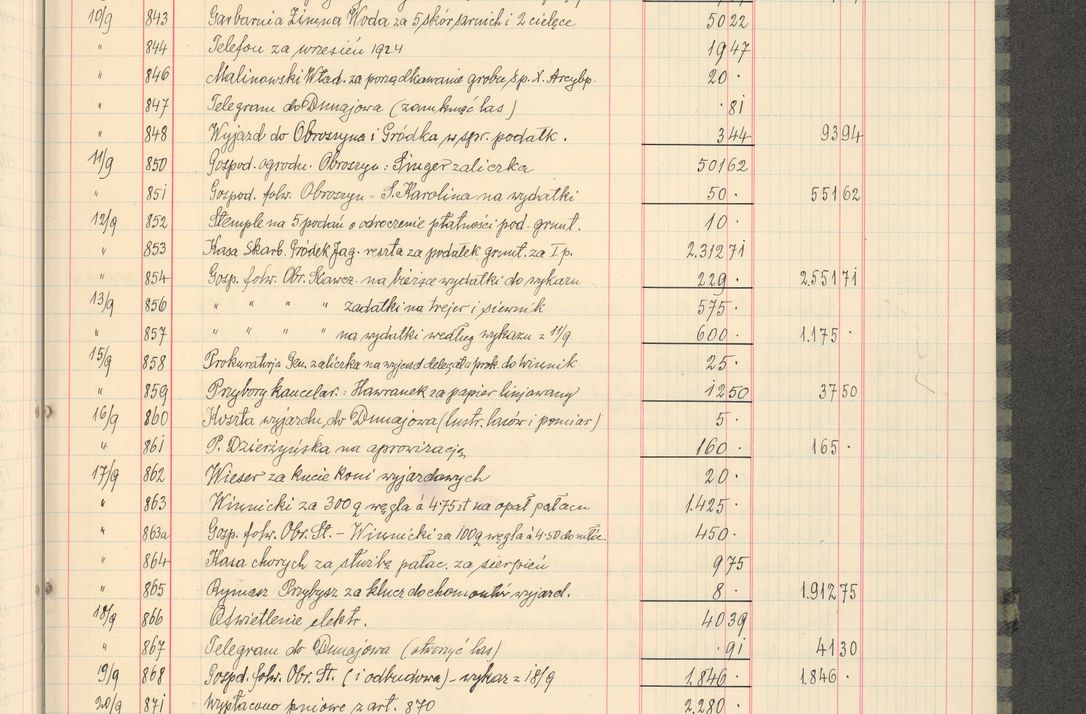 10/9 843 Garbarnia Zimna Woda za 5 skór sarnich i 2 cielęce 50 22
" 844 Telefon za wrzesień 1924 19 47
" 846 Malinowski Wład. za porządkowanie grobu śp. X. Arcybp. 20 ·
" 847 Telegram do Dunajowa (zamknąć las) · 81
" 848 Wyjazd do Obroszyna i Gródka w spr. podatk. 3 44 93 94
11/9 850 Gospod. ogrodn. Obroszyn : Singer zaliczka 501 62
" 851 Gospod. folw. Obroszyn - S. Karolina na wydatki 50 · 551 62
12/9 852 Stemple na 5 podań o odroczenie płatności pod. grunt. 10 ·
" 853 Kasa Skarb. Gródek Jag. reszta za podatek grunt. za I p. 2.312 71
" 854 Gosp. folw. Obr. na bieżące wydatki do wykazu 229 · 2.551 71
13/9 856 " " " " zadatki na trejer i siewnik 575 ·
" 857 " " " " na wydatki według wykazu z 11/9 600 · 1.175 ·
15/9 858 Prokuratorja Gen. zaliczka na wyjazd delegata prok. do Winnik 25 ·
" 859 Przybory kancelar. : Hawranek za papier linjowany 12 50 37 50
16/9 860 Koszta wyjazdu do Dunajowa (lustr. lasów i pomiar) 5 ·
" 861 P. Dzierżyńska na aprowizację 160 · 165 ·
17/9 862 Wieser za kucie koni wyjazdowych 20 ·
" 863 Winnicki za 300 q węgla á 4·75 zł na opał pałacu 1.425 ·
" 863a Gosp. folw. Obr. St. - Winnicki za 100 q węgla á 4·50 do 450 ·
" 864 Kasa chorych za służbę pałac. za sierpień 9 75
" 865 Rymarz Przybysz za klucz do chomontów wyjazd. 8 · 1.912 75
18/9 866 Oświetlenie elektr. 40 39
" 867 Telegram do Dunajowa (otworzyć las) · 91 41 30
19/9 868 Gospd. folw. Obr. St. (i odbudowa) - wykaz z 18/9 1.846 · 1.846 ·
20/9 871 Wypłacono pniowe z art. 870 2.280 ·